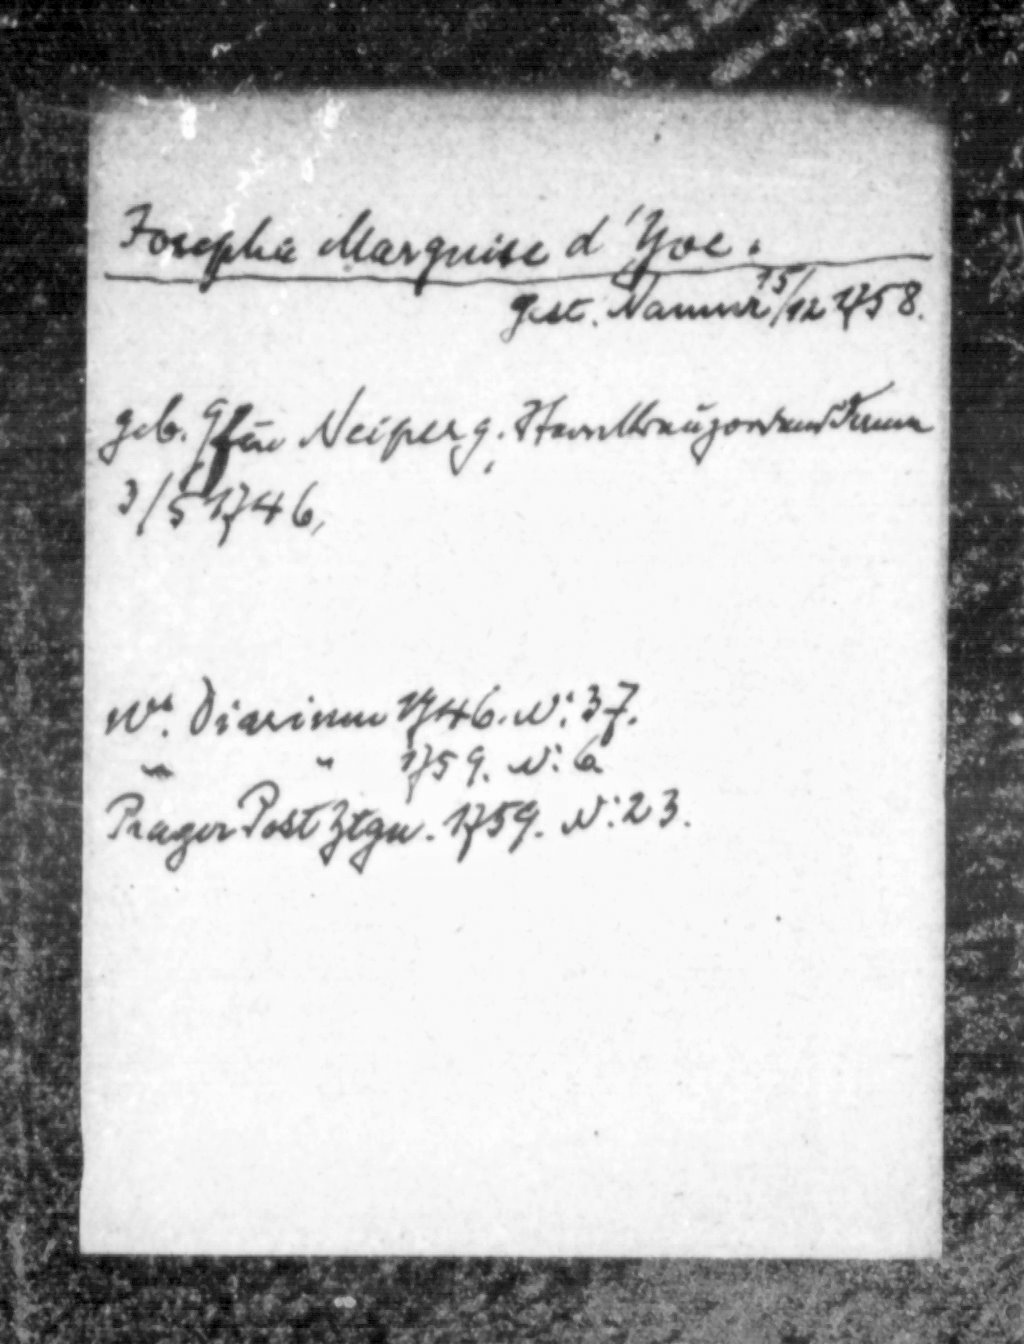 Josepha Marquise d'Yve.
gest. Namur 15/12 1758.
geb. Gfin Neiperg. Sternkreuzordensdame
3/5 1746,
Wr. Diarium 1746. N: 37.
" " 1759. N: 6.
Prager Post Ztgn. 1759. N: 23.